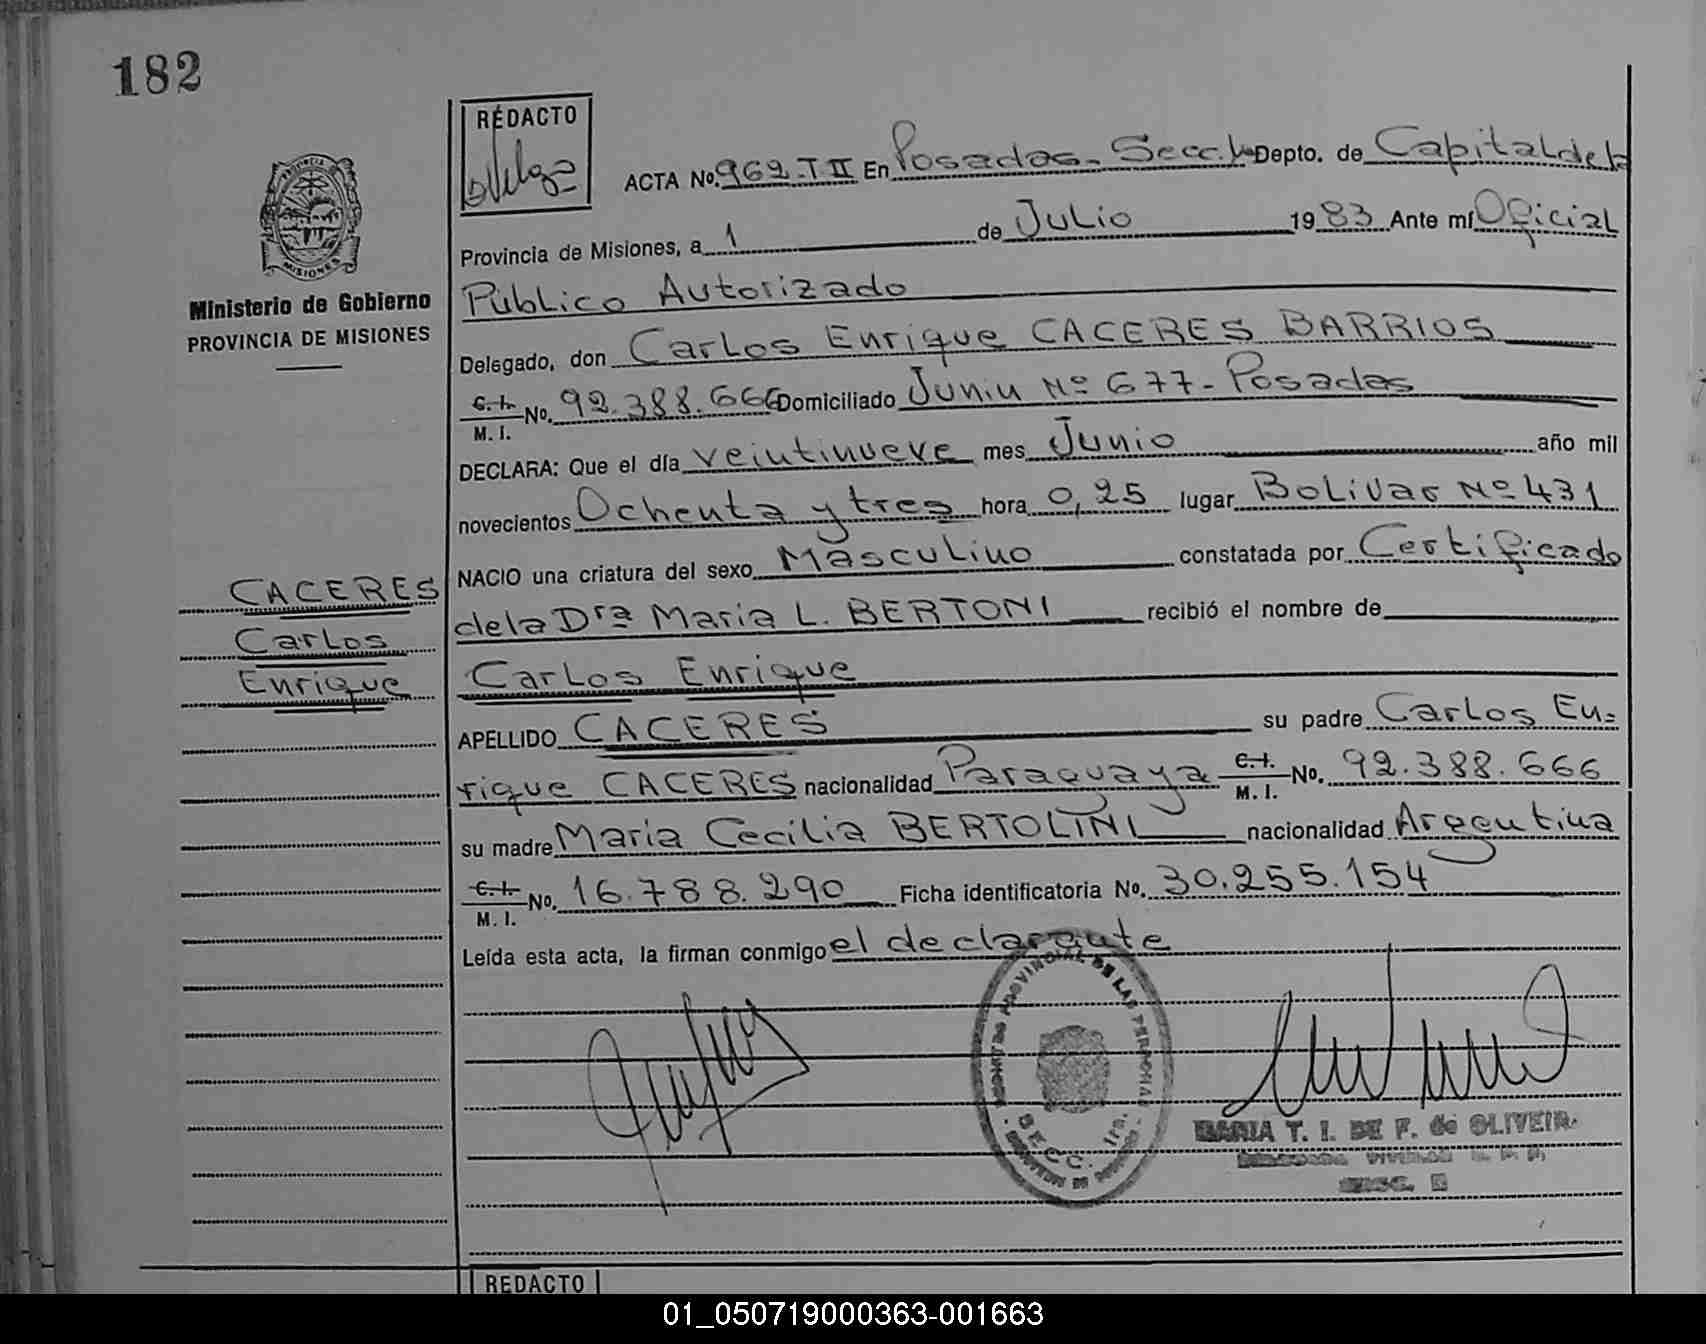 182
REDACTO
PROVINCIA DE
MISIONES
Ministerio de Gobierno
PROVINCIA DE MISIONES
ACTA No. 969-T II En Posadas- Secc. 1ª Depto. de Capital de la
Provincia de Misiones, a 1 de Julio 1983 Ante mí Oficial
Público Autorizado
Delegado, don Carlos Enrique CACERES BARRIOS
C.I. M. I. No. 92.388.666 Domiciliado Junin Nº 677- Posadas
DECLARA: Que el día veintinueve mes Junio año mil
novecientos Ochenta y tres hora 0,25 lugar Bolivar Nº 431
NACIO una criatura del sexo Masculino constatada por Certificado
de la Drª Maria L. BERTONI recibió el nombre de
Carlos Enrique
APELLIDO CACERES su padre Carlos En=
rique CACERES nacionalidad Paraguaya C.I. M. I. No. 92.388.666
su madre Maria Cecilia BERTOLINI nacionalidad Argentina
C.I. M. I. No. 16.788.290 Ficha identificatoria No. 30.255.154
Leída esta acta, la firman conmigo el declarante
CACERES
Carlos
Enrique
PROVINCIAL DE LAS PERSONAS
SECC. 1ra.
MARIA T. I. DE F. de OLIVEIR
REDACTO
01_050719000363-001663